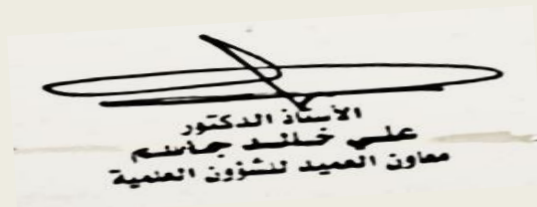 الأستاذ الدكتور
علي خالد جاسم
معاون العميد للشؤون العلمية